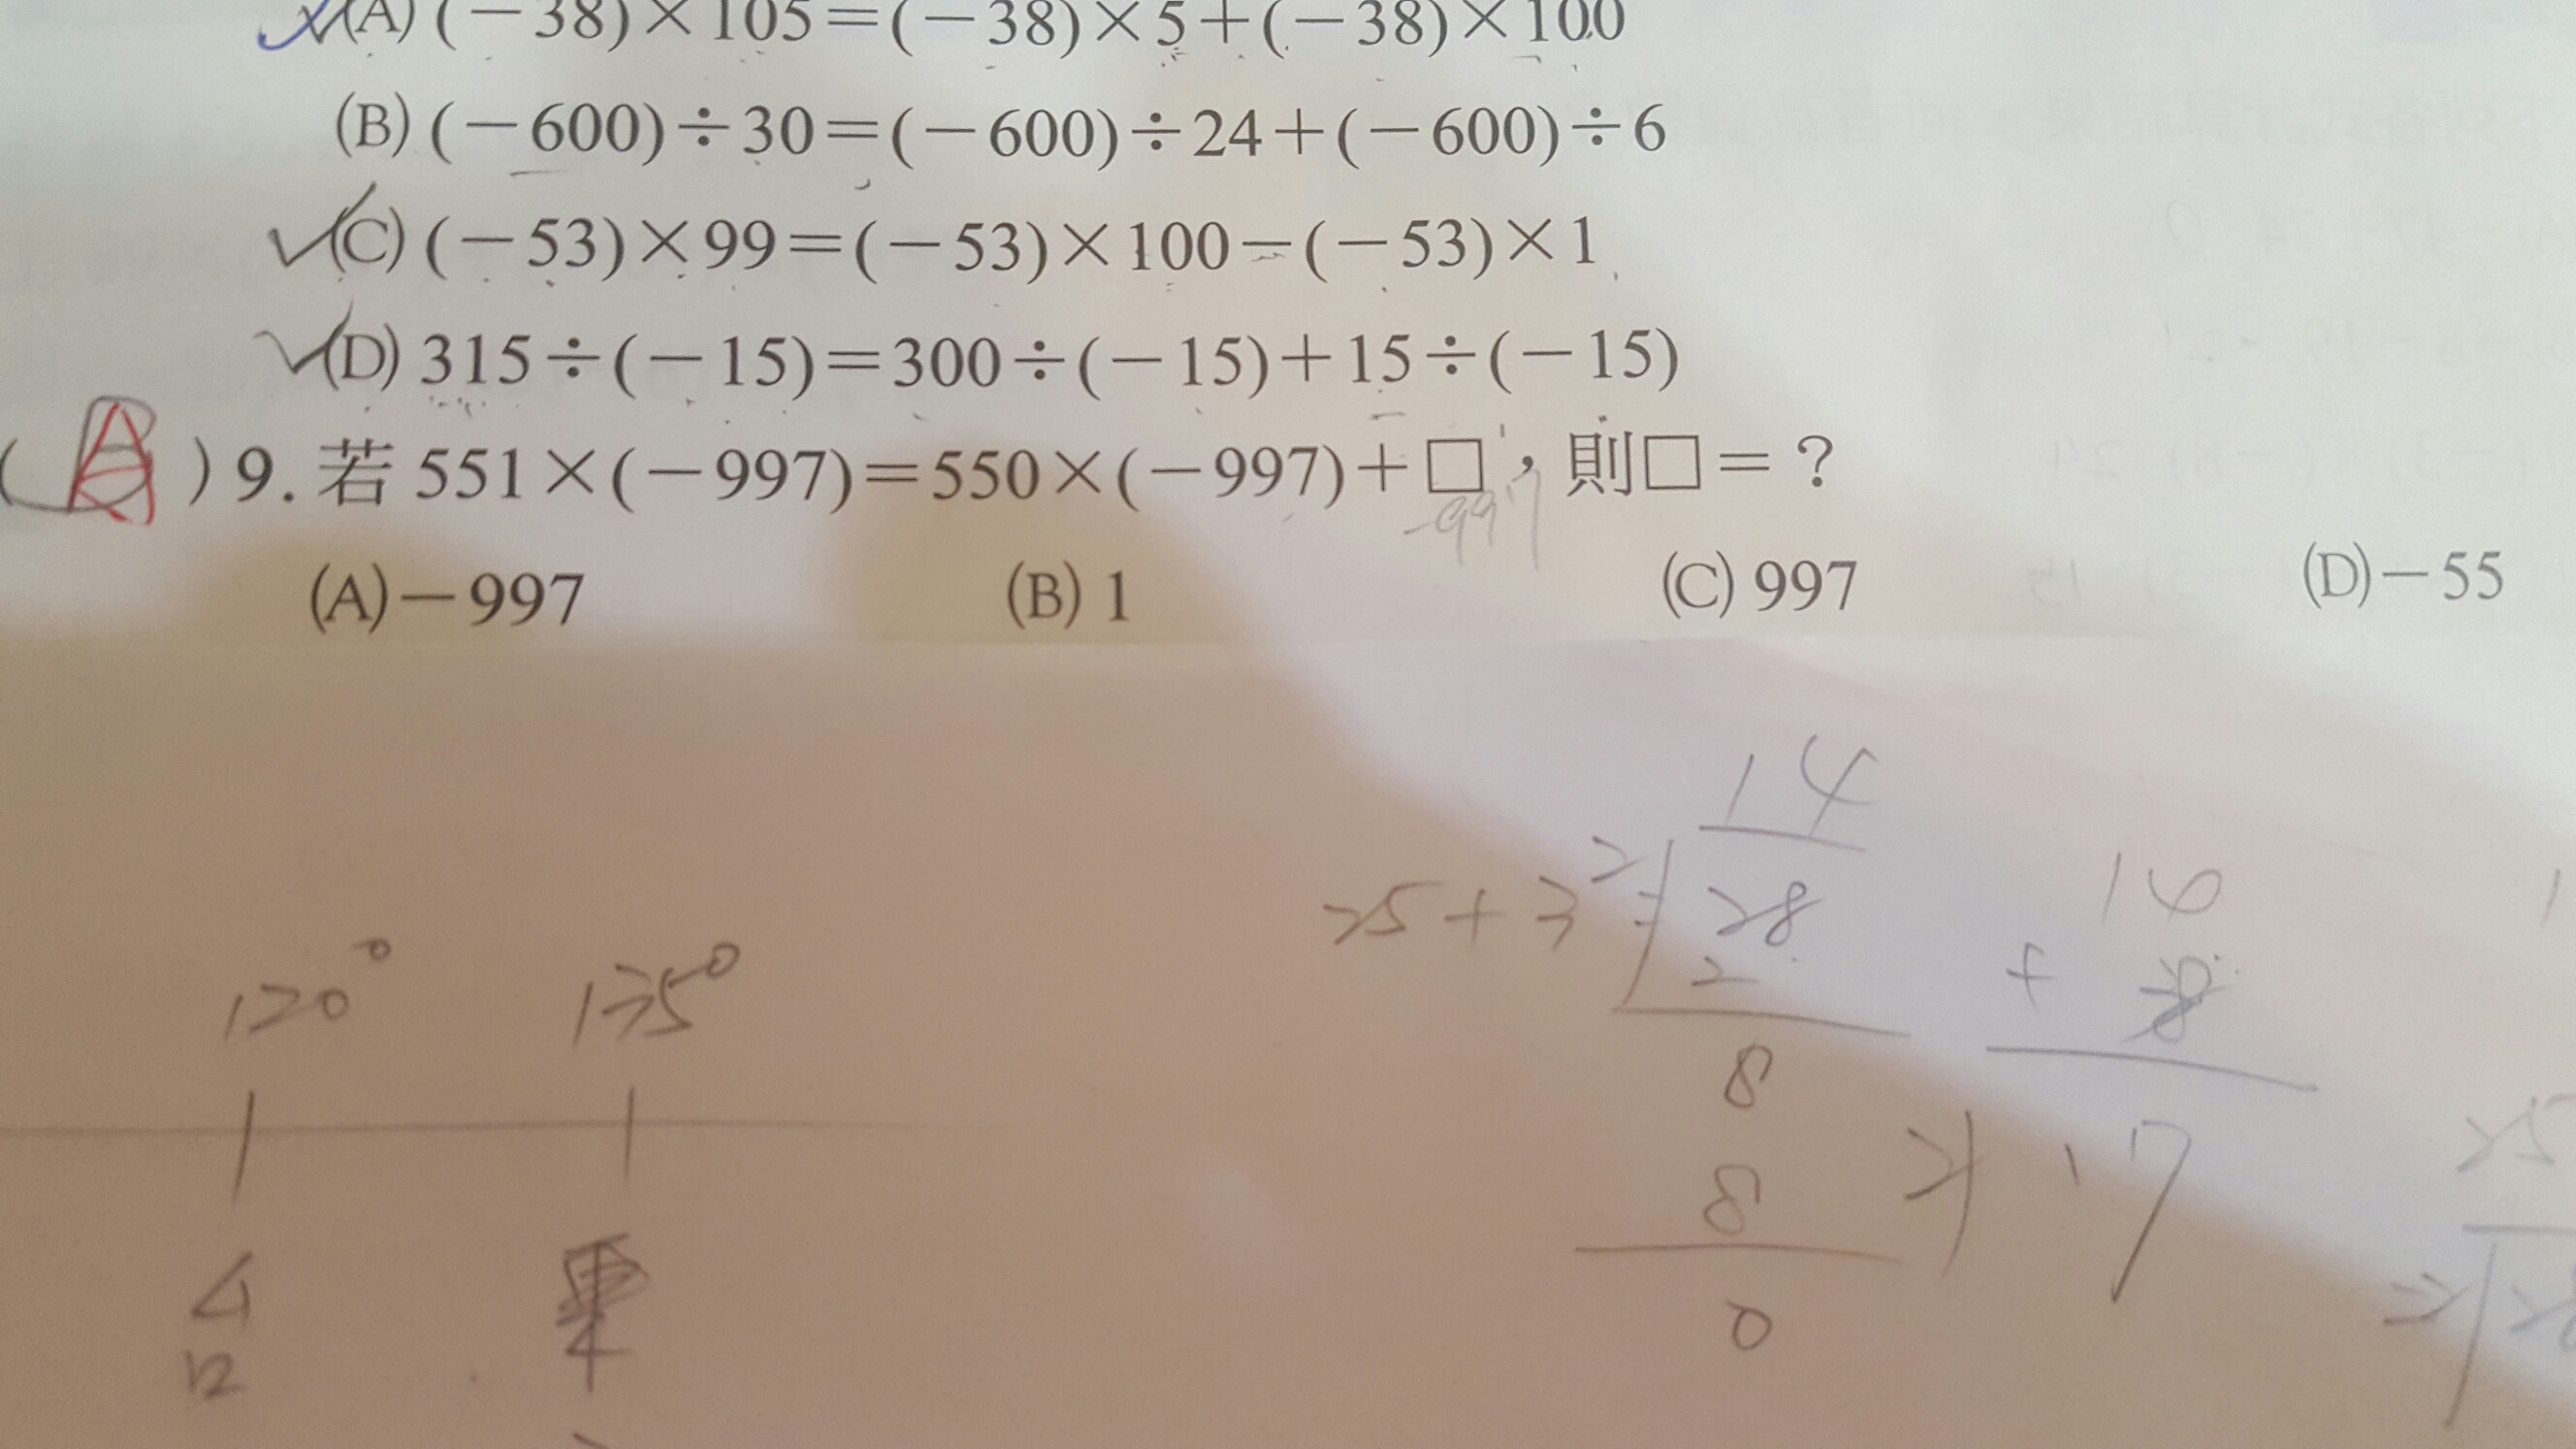 (A) (−38)×105=(−38)×5+(−38)×100
(B) (−600)÷30=(−600)÷24+(−600)÷6
(C) (−53)×99=(−53)×100−(−53)×1
(D) 315÷(−15)=300÷(−15)+15÷(−15)
( A ) 9. 若 551×(−997)=550×(−997)+□,則□=?
-997
(A)−997 (B) 1 (C) 997 (D)−55
14
25+3 2 28
2
8
8
0
14
+
2 17
120° 135°
4
12
25